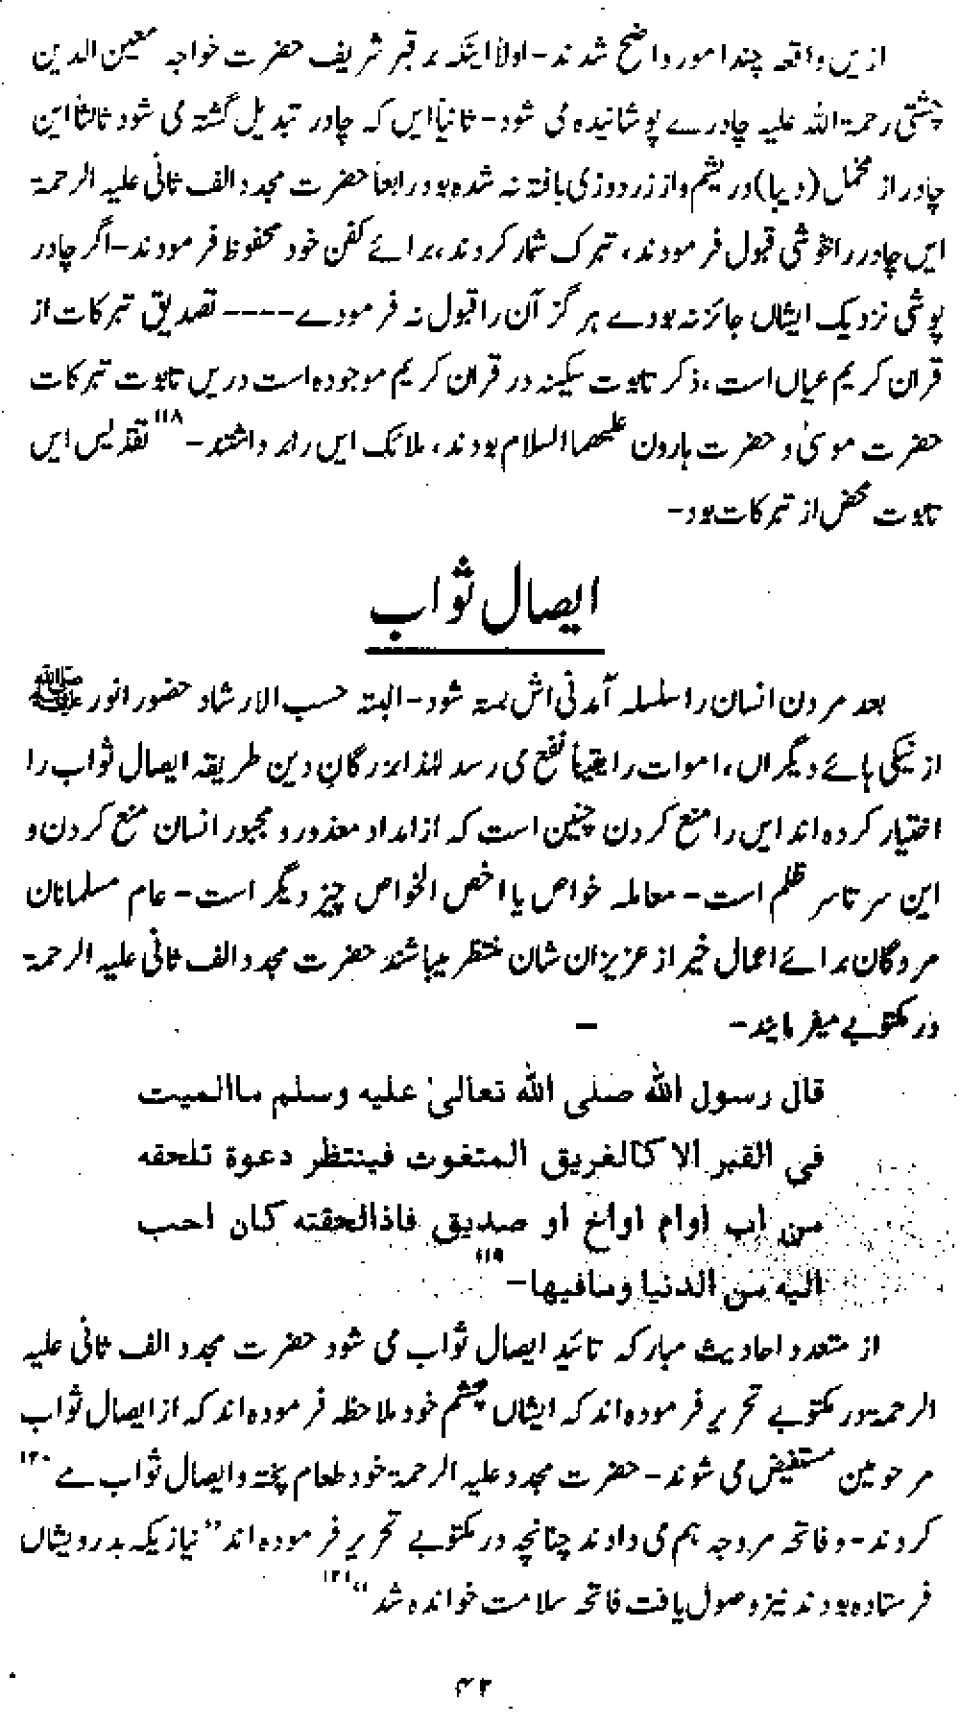 ازیں واقعہ چند امور واضح شدند۔ اولاً اینکہ بر قبر شریف حضرت خواجہ معین الدین
چشتی رحمۃ اللہ علیہ چادرے پوشانیدہ می شود۔ ثانیاً ایں کہ چادر تبدیل گشتہ می شود ثالثاً این
چادر از مخمل (دیبا) وریشم و از زردوزی بافتہ نہ شدہ بود رابعاً حضرت مجدد الف ثانی علیہ الرحمۃ
ایں چادر را بخوشی قبول فرمودند، تبرک شمار کردند، برائے کفن خود محفوظ فرمودند۔ اگر چادر
پوشی نزدیک ایشاں جائز نہ بودے ہرگز آن را قبول نہ فرمودے۔۔۔۔ تصدیق تبرکات از
قران کریم عیاں است، ذکر تابوت سکینہ در قران کریم موجودہ است دریں تابوت تبرکات
حضرت موسیٰ و حضرت ہارون علیھما السلام بودند، ملائک ایں را برداشتند۔ ۱۱۸ تقدیس ایں
تابوت محض از تبرکات بود۔
ایصال ثواب
بعد مردن انسان را سلسلہ آمدنی اش بستہ شود۔ البتہ حسب الارشاد حضور انور ﷺ
از نیکی ہائے دیگراں، اموات را یقیناً نفع می رسد لہٰذا بزرگان دین طریقہ ایصال ثواب را
اختیار کردہ اند ایں را منع کردن چنین است کہ از امداد معذور و مجبور انسان منع کردن و
این سرتاسر ظلم است۔ معاملہ خواص یا اخص الخواص چیز دیگر است۔ عام مسلمانان
مردگان برائے اعمال خیر از عزیزان شان منتظر میباشند حضرت مجدد الف ثانی علیہ الرحمۃ
در مکتوبے میفرمایند۔
قال رسول الله صلی الله تعالیٰ علیه وسلم ماالمیت
فی القبر الا کالغریق المتغوث فینتظر دعوة تلحقه
من اب اوام اواخ او صدیق فاذالحقته کان احب
الیه من الدنیا ومافیها۔ ۱۱۹
از متعدد احادیث مبارکہ تائید ایصال ثواب می شود حضرت مجدد الف ثانی علیہ
الرحمۃ در مکتوبے تحریر فرمودہ اند کہ ایشاں بچشم خود ملاحظہ فرمودہ اند کہ از ایصال ثواب
مرحومین مستفیض می شوند۔ حضرت مجدد علیہ الرحمۃ خود طعام پختہ و ایصال ثواب مے ۱۲۰
کردند۔ و فاتحہ مروجہ ہم می دادند چنانچہ در مکتوبے تحریر فرمودہ اند "نیازیکہ بدرویشاں
فرستادہ بودند نیز وصول یافت فاتحہ سلامت خواندہ شد" ۱۲۱
۴۲